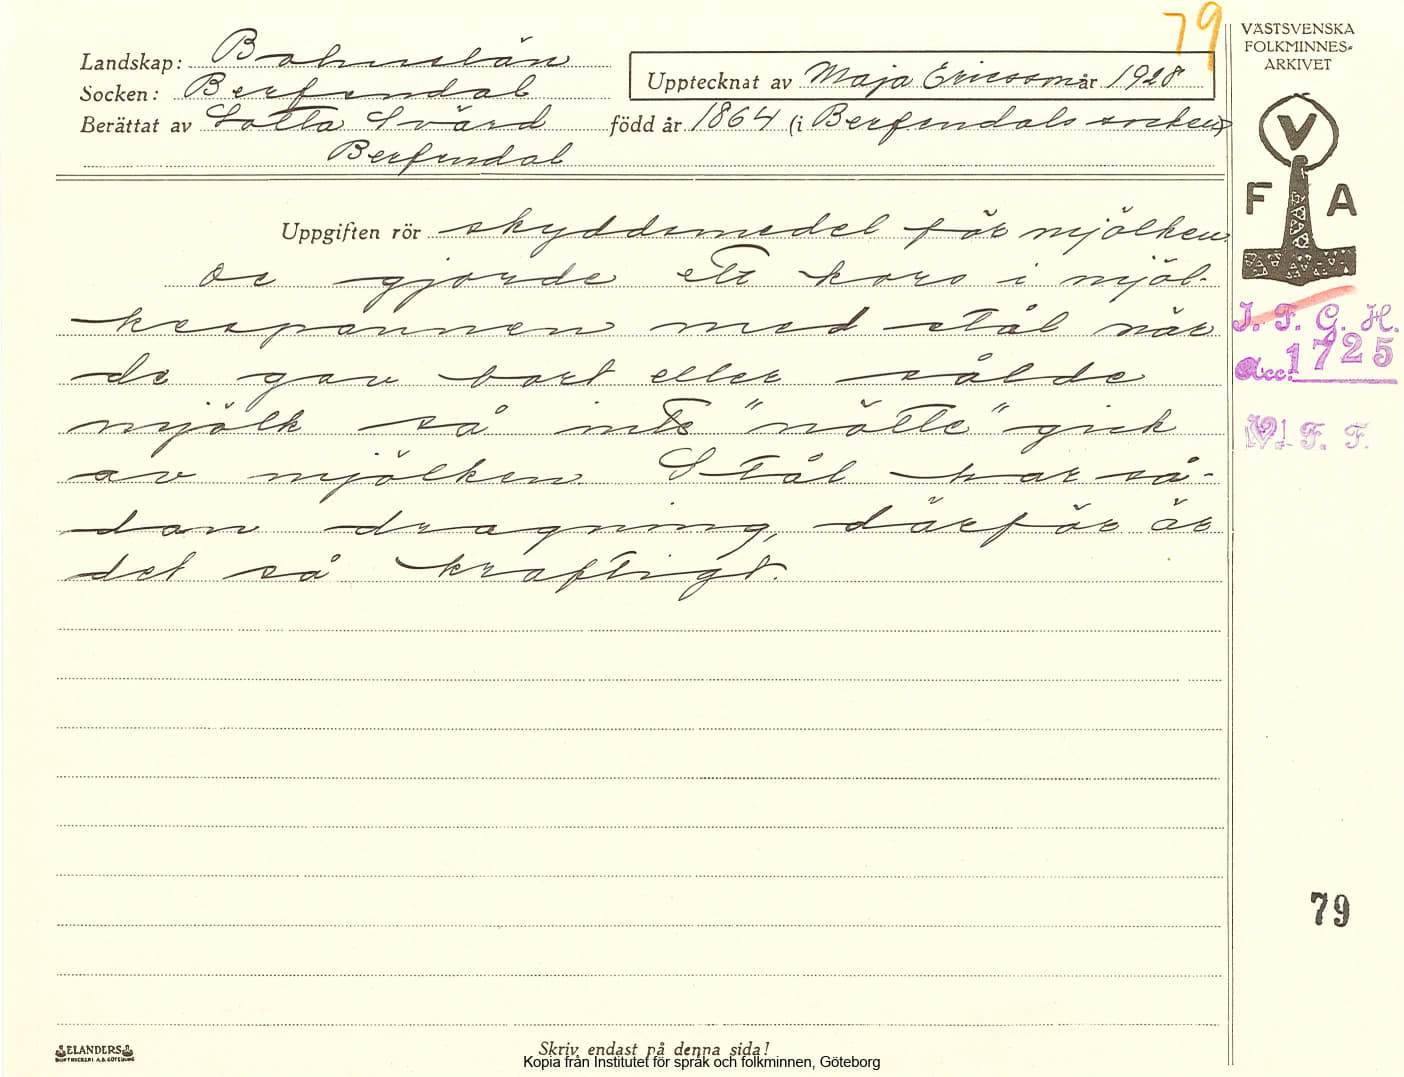 79
VÄSTSVENSKA
FOLKMINNES-
ARKIVET
Landskap: Bohuslän
Upptecknat av Maja Ericsson år 1928
Socken: Berfendal
Berättat av Lotta Svärd född år 1864 (i Berfendals socken)
Berfendal
V
F A
Uppgiften rör skyddsmedel för mjölken.
De gjorde ett kors i mjöl-
kespannen med stål när
de gav bort eller sålde
mjölk så inte "nötte" gick
av mjölken. Stål har så-
dan dragning, därför är
det så kraftigt.
I. F. G. H.
Acc. 1725
V. F. F.
79
ELANDERS
Skriv endast på denna sida!
Kopia från Institutet för språk och folkminnen, Göteborg